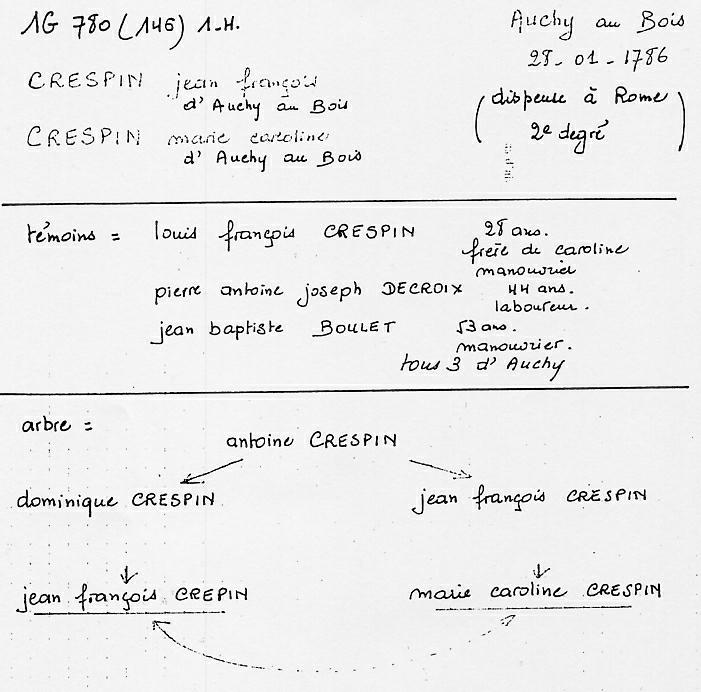 1G 780 (146) 1.H.
Auchy au Bois
28-01-1786
(dispense à Rome
2e degré)
CRESPIN jean françois
d'Auchy au Bois
CRESPIN marie caroline
d'Auchy au Bois
témoins = louis françois CRESPIN 28 ans.
frère de caroline
manouvrier
pierre antoine joseph DECROIX 44 ans.
laboureur.
jean baptiste BOULET 53 ans.
manouvrier.
tous 3 d'Auchy
arbre =
antoine CRESPIN
dominique CRESPIN jean françois CRESPIN
jean françois CREPIN marie caroline CRESPIN